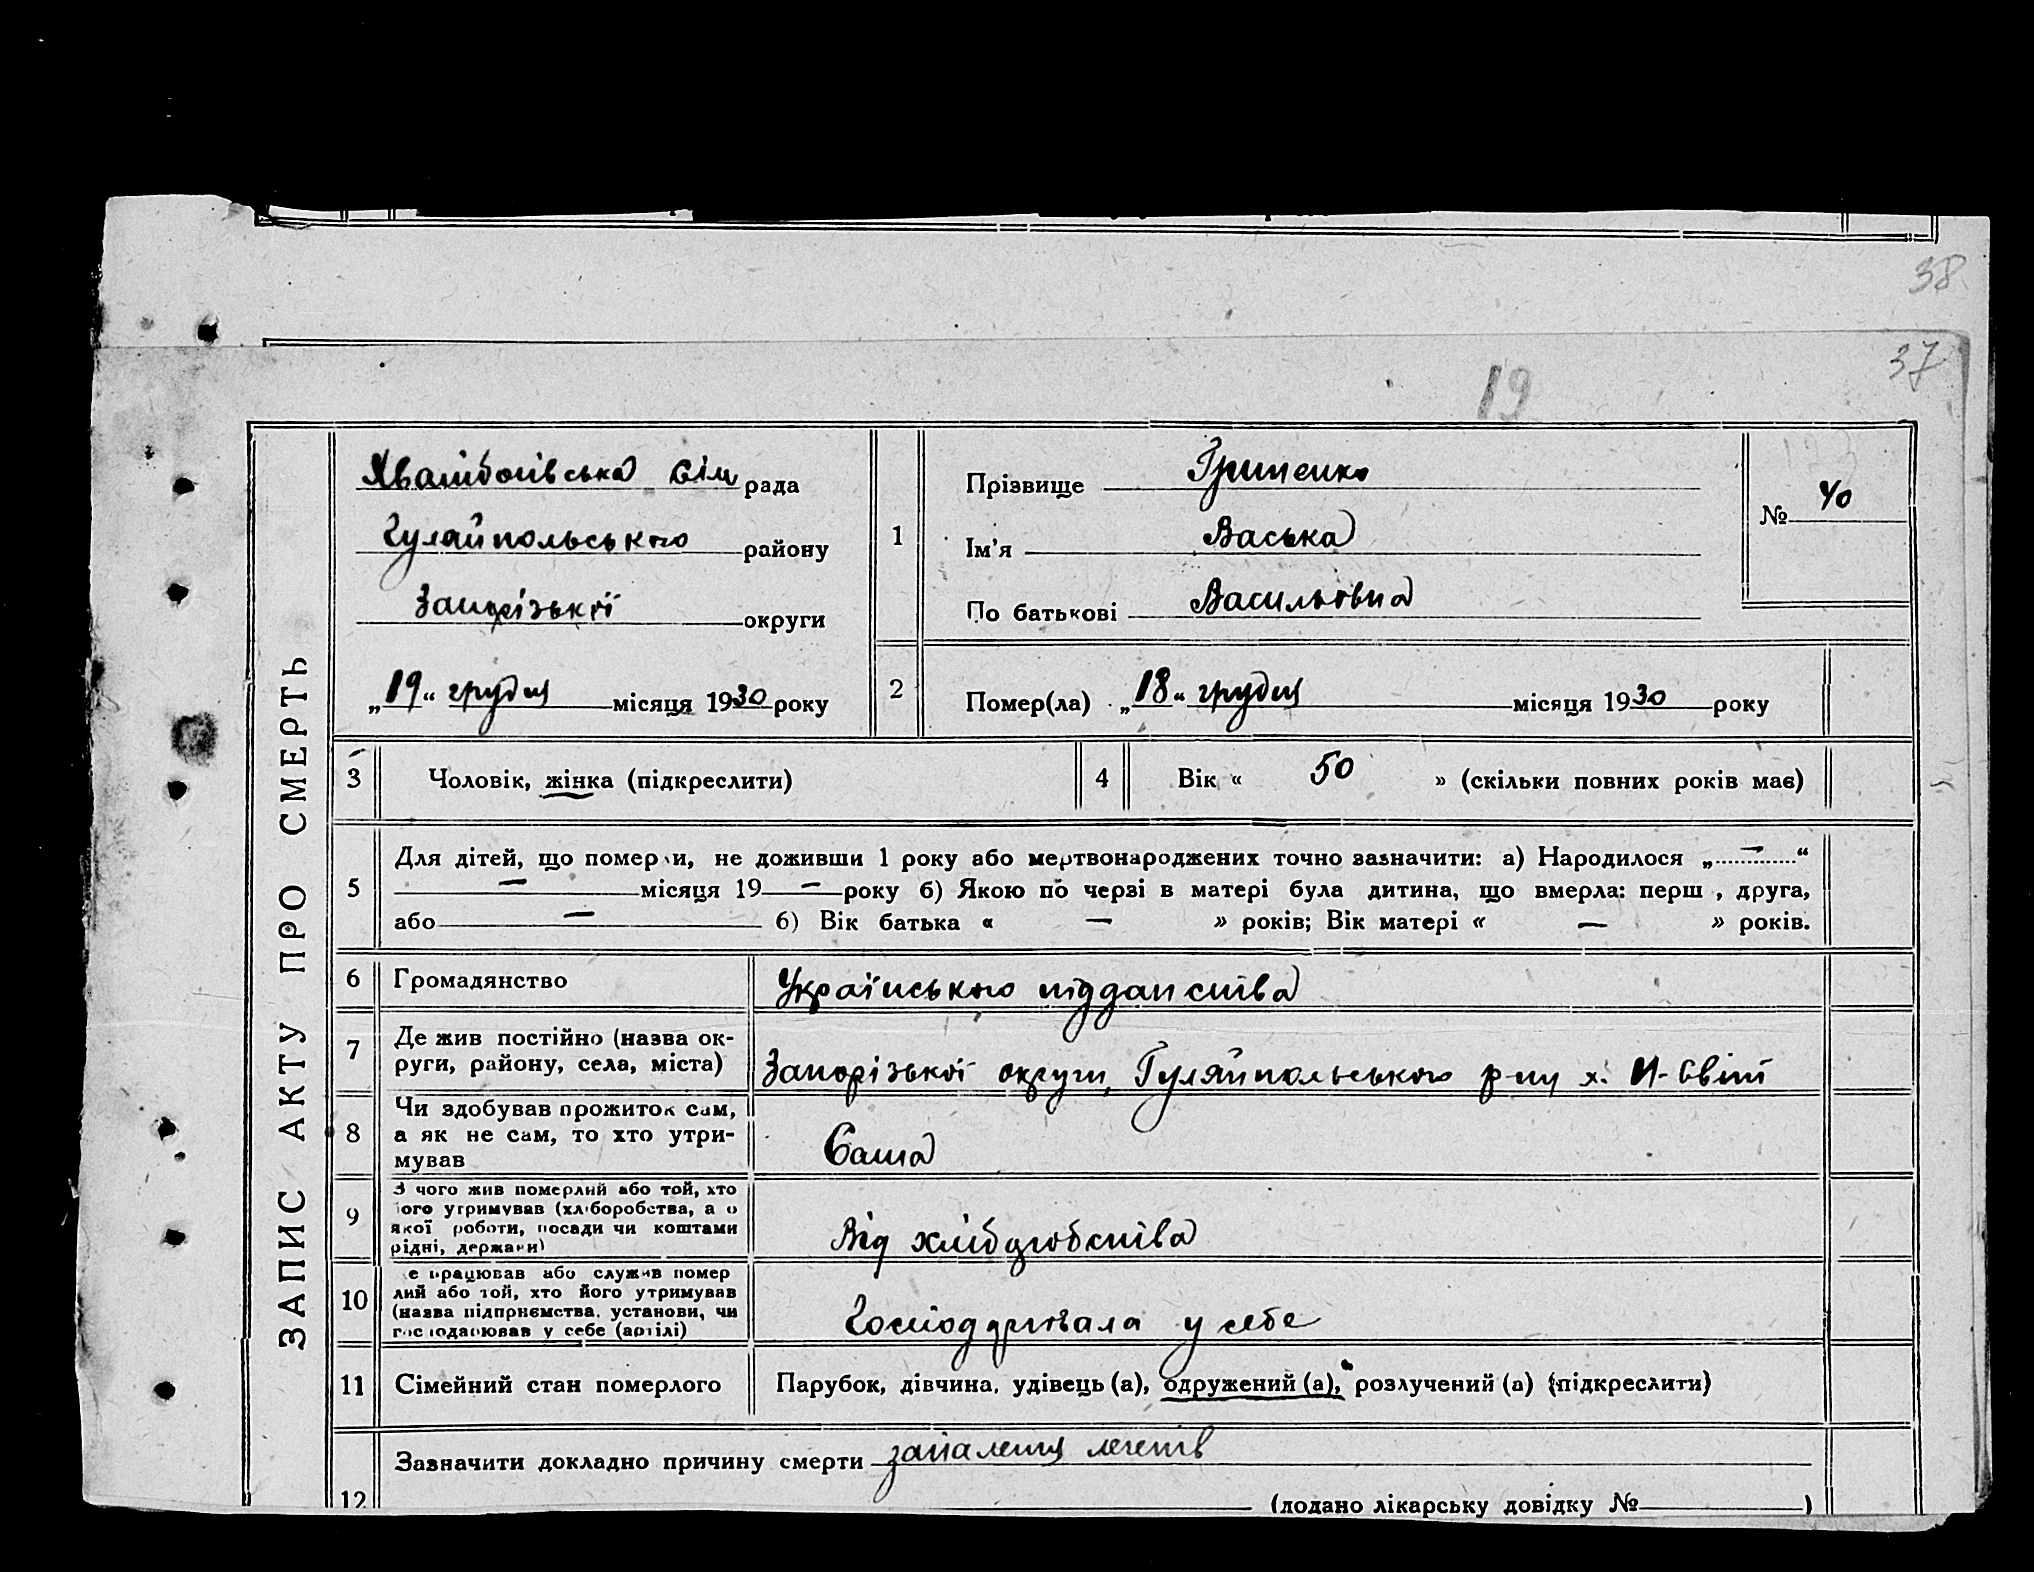 38
37
19
ЗАПИС АКТУ ПРО СМЕРТЬ
Хвалібогівська сіл рада
Гуляйпольського району
Запорізької округи
„19“ грудня місяця 1930 року
1
Прізвище Гриценко
Ім'я Васька
По батькові Васильовна
№ 40
2
Помер(ла) „18“ грудня місяця 1930 року
3 Чоловік, жінка (підкреслити)
4 Вік « 50 » (скільки повних років має)
5
Для дітей, що померли, не доживши 1 року або мертвонароджених точно зазначити: а) Народилося „ — “
— місяця 19 — року б) Якою по черзі в матері була дитина, що вмерла: перш , друга,
або — б) Вік батька « — » років; Вік матері « — » років.
6 Громадянство Українського підданства
7
Де жив постійно (назва ок-
руги, району, села, міста) Запорізької округи, Гуляйпольського р-ну х. Н-Світ
8
Чи здобував прожиток сам,
а як не сам, то хто утри-
мував
Сама
9
З чого жив померлий або той, хто
його утримував (хліборобства, а о
якої роботи, посади чи коштами
рідні, держави)
Від хлібодробства
10
е працював або служив помер
лий або той, хто його утримував
(назва підприємства, установи, чи
господарював у себе (артілі)
Господарювала у себе
11 Сімейний стан померлого Парубок, дівчина, удівець (а), одружений (а), розлучений (а) (підкреслити)
12
Зазначити докладно причину смерти запалення легенів
(додано лікарську довідку № )